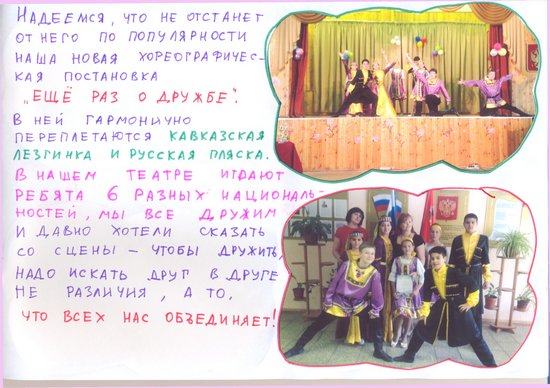 Надеемся, что не отстанет
от него по популярности
наша новая хореографичес-
кая постановка
„Ещё раз о дружбе".
В ней гармонично
переплетаются кавказская
лезгинка и русская пляска.
В нашем театре играют
ребята 6 разных националь-
ностей, мы все дружим
и давно хотели сказать
со сцены – чтобы дружить,
надо искать друг в друге
не различия, а то,
что всех нас объединяет!